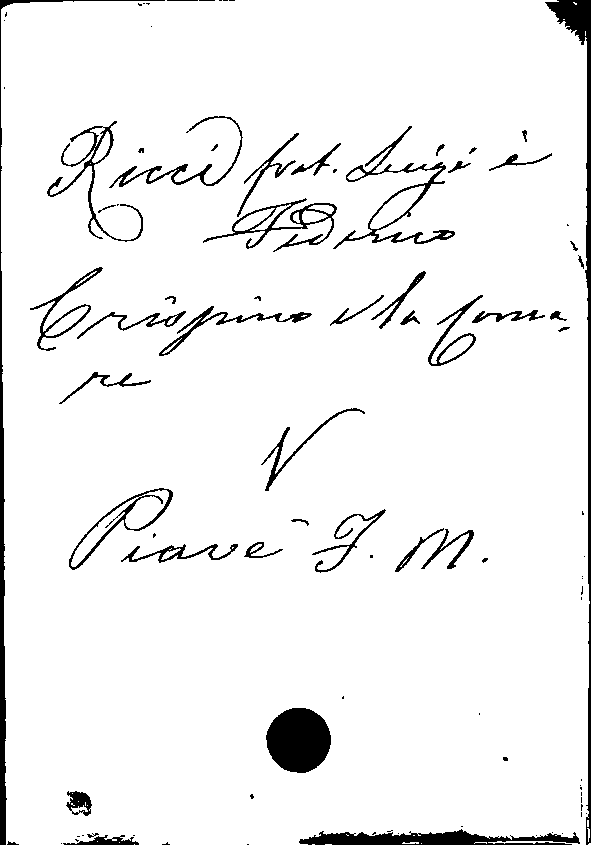 Ricci frat. Luigi è
Federico
Crispino e la Coma-
re
V
Piave F. M.